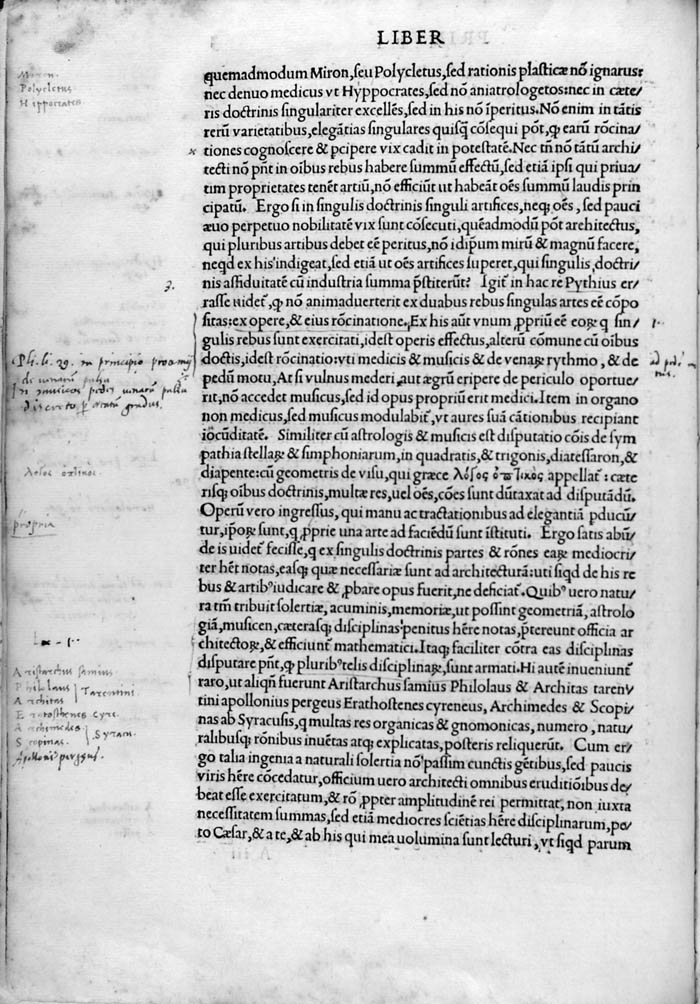 LIBER
quemadmodum Miron, ſeu Polycletus, ſed rationis plaſticæ nõ ignarus:
nec denuo medicus vt Hyppocrates, ſed nõ aniatrologetos: nec in cæte/
ris doctrinis ſingulariter excellẽs, ſed in his nõ ĩperitus. Nõ enim in tãtis
rerũ varietatibus, elegãtias ſingulares quiſq̃ cõſequi põt, q̃ earũ rõcina/
tiones cognoſcere & pcipere vix cadit in poteſtatẽ. Nec tñ nõ tãtũ archi/
tecti nõ pñt in oĩbus rebus habere ſummũ effectũ, ſed etiã ipſi qui priua/
tim proprietates tenẽt artiũ, nõ efficiũt ut habeãt oẽs ſummũ laudis prin
cipatũ. Ergo ſi in ſingulis doctrinis ſinguli artifices, neq; oẽs, ſed pauci
æuo perpetuo nobilitatẽ vix ſunt cõſecuti, quẽadmodũ põt architectus,
qui pluribus artibus debet eẽ peritus, nõ idipſum mirũ & magnũ facere,
neqd ex his indigeat, ſed etiã ut oẽs artifices ſuperet, qui ſingulis doctri/
nis aſſiduitatẽ cũ induſtria ſumma pſtiterũt? Igit̃ in hac re Pythius er/
raſſe uidet̃, q̃ nõ animaduerterit ex duabus rebus ſingulas artes eẽ cõpo
ſitas: ex opere, & eius rõcinatione. Ex his aũt vnum ppriũ eẽ eoꝝ q ſin/
gulis rebus ſunt exercitati, ideſt operis effectus, alterũ cõmune cũ oĩbus
doctis, ideſt rõcinatio: vti medicis & muſicis & de venaꝝ rythmo, & de
pedũ motu, At ſi vulnus mederi, aut ægrũ eripere de periculo oportue/
rit, nõ accedet muſicus, ſed id opus propriũ erit medici. Item in organo
non medicus, ſed muſicus modulabit̃, vt aures ſuã cãtionibus recipiant
iocũditatẽ. Similiter cũ aſtrologis & muſicis eſt diſputatio cõis de ſym
pathia ſtellaꝝ & ſimphoniarum, in quadratis, & trigonis, diateſſaron, &
diapente: cũ geometris de viſu, qui græce λόγος ὀπτικὸς appellat̃: cæte
riſq; oĩbus doctrinis, multæ res, uel oẽs, cões ſunt dũtaxat ad diſputãdũ.
Operũ vero ingreſſus, qui manu ac tractationibus ad elegantiã pducũ/
tur, ipoꝝ ſunt, q pprie una arte ad faciẽdũ ſunt ĩſtituti. Ergo ſatis abũ/
de is uidet̃ feciſſe, q ex ſingulis doctrinis partes & rõnes eaꝝ mediocri/
ter hẽt notas, eaſq; quæ neceſſariæ ſunt ad architecturã: uti ſiqd de his re
bus & artibꝰ iudicare & pbare opus fuerit, ne deficiat̃. Quibꝰ uero natu/
ra tm̃ tribuit ſolertiæ, acuminis, memoriæ, ut poſſint geometriã, aſtrolo
giã, muſicen, cæteraſq; diſciplinas penitus hẽre notas, ptereunt officia ar
chitectoꝝ, & efficiunt̃ mathematici. Itaq; faciliter cõtra eas diſciplinas
diſputare pñt, q pluribꝰ telis diſciplinaꝝ, ſunt armati. Hi autẽ inueniunt̃
raro, ut aliqñ fuerunt Ariſtarchus ſamius Philolaus & Architas taren/
tini apollonius pergeus Erathoſtenes cyreneus, Archimedes & Scopi/
nas ab Syracuſis, q multas res organicas & gnomonicas, numero, natu/
ralibuſq; rõnibus inuẽtas atq; explicatas, poſteris reliquerũt. Cum er/
go talia ingenia a naturali ſolertia nõ paſſim cunctis gẽtibus, ſed paucis
viris hẽre cõcedatur, officium uero architecti omnibus eruditiõibus de/
beat eſſe exercitatum, & rõ ppter amplitudinẽ rei permittat, non iuxta
neceſſitatem ſummas, ſed etiã mediocres ſciẽtias hẽre diſciplinarum, pe/
to Cæſar, & a te, & ab his qui mea uolumina ſunt lecturi, vt ſiqd parum
Miron.
Polycletus.
Hippocrates
Pli. li. 29. in principio proœmij
λόγος ὀπτικος
propria
Aristarchus samius
Philolaus
Architas
Tarentini.
Eratosthenes Cyre.
Archimedes
Scopinas.
Syracu.
Apolloni pergeus.